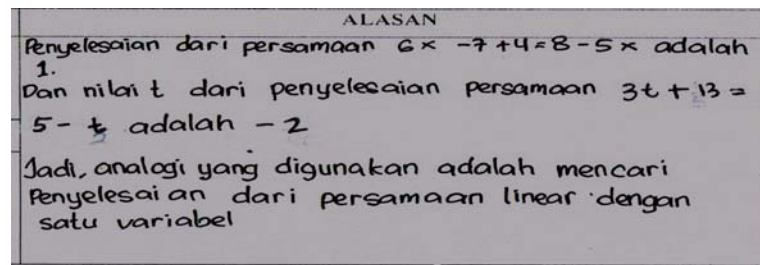 ALASAN
Penyelesaian dari persamaan 6x -7+4=8-5x adalah
1.
Dan nilai t dari penyelesaian persamaan 3t + 13 =
5 - t adalah - 2
Jadi, analogi yang digunakan adalah mencari
Penyelesaian dari persamaan linear dengan
satu variabel